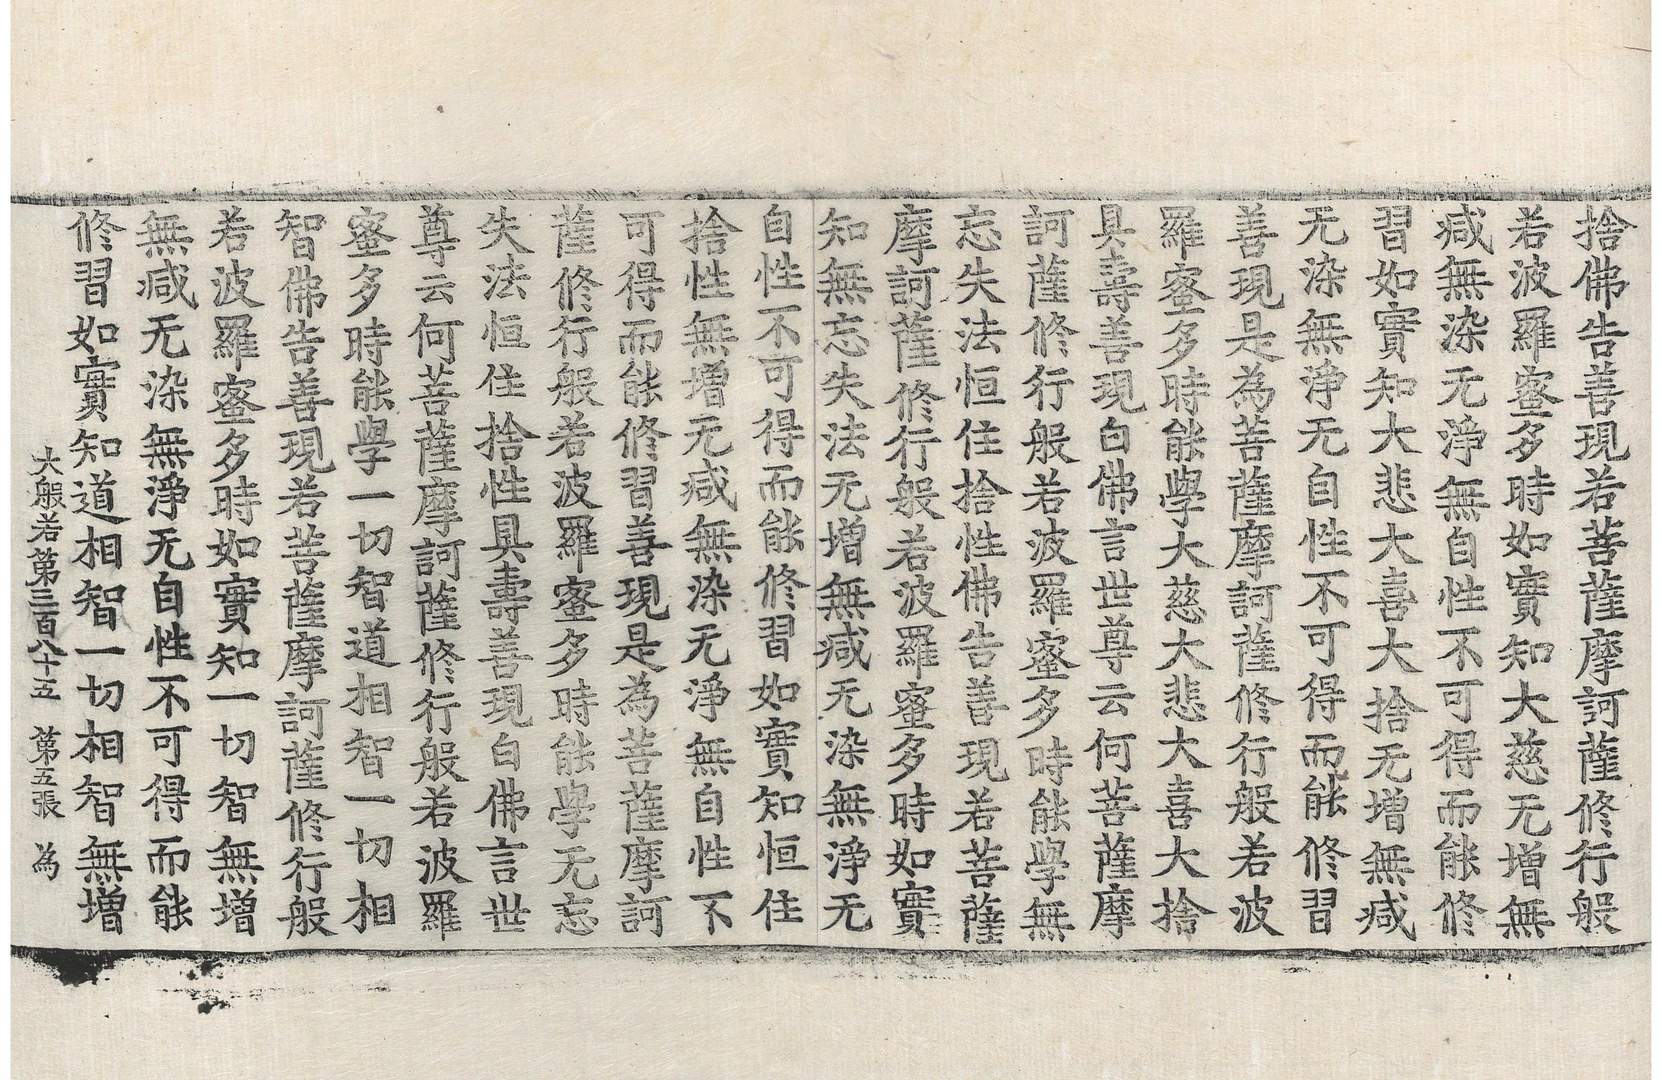 捨佛告善現若菩薩摩訶薩修行般
若波羅蜜多時如實知大慈无增無
減無染无淨無自性不可得而能修
習如實知大悲大喜大捨无增無減
无染無淨无自性不可得而能修習
善現是為菩薩摩訶薩修行般若波
羅蜜多時能學大慈大悲大喜大捨
具壽善現白佛言世尊云何菩薩摩
訶薩修行般若波羅蜜多時能學無
忘失法恒住捨性佛告善現若菩薩
摩訶薩修行般若波羅蜜多時如實
知無忘失法无增無減无染無淨无
自性不可得而能修習如實知恒住
捨性無增无減無染无淨無自性不
可得而能修習善現是為菩薩摩訶
薩修行般若波羅蜜多時能學无忘
失法恒住捨性具壽善現白佛言世
尊云何菩薩摩訶薩修行般若波羅
蜜多時能學一切智道相智一切相
智佛告善現若菩薩摩訶薩修行般
若波羅蜜多時如實知一切智無增
無減无染無淨无自性不可得而能
修習如實知道相智一切相智無增
大般若第三百八十五 第五張 為